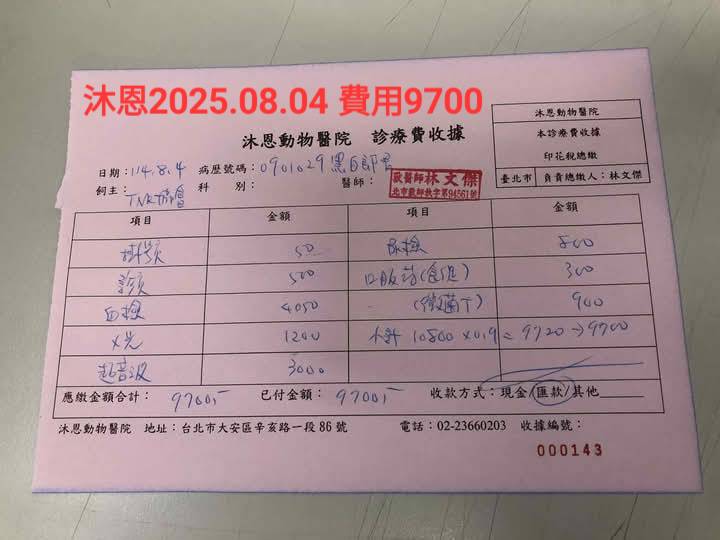 沐恩2025.08.04 費用9700
沐恩動物醫院 診療費收據
沐恩動物醫院
本診療費收據
印花稅總繳
臺北市 負責總繳人：林文傑
日期：114.8.4 病歷號碼：0901029黑白郎君
飼主：TNR協會 科 別： 醫師： 獸醫師林文傑
北市獸師執字第94561號
項目 金額 項目 金額
掛號 50 尿檢 800
診察 500 口服藥(食慾) 300
血檢 4050 900
X光 1200 小計 10800 x0.9 = 9720→9700
超音波 3000
應繳金額合計： 9700,- 已付金額： 9700,- 收款方式：現金/匯款/其他
沐恩動物醫院 地址：台北市大安區辛亥路一段86號 電話：02-23660203 收據編號：
000143